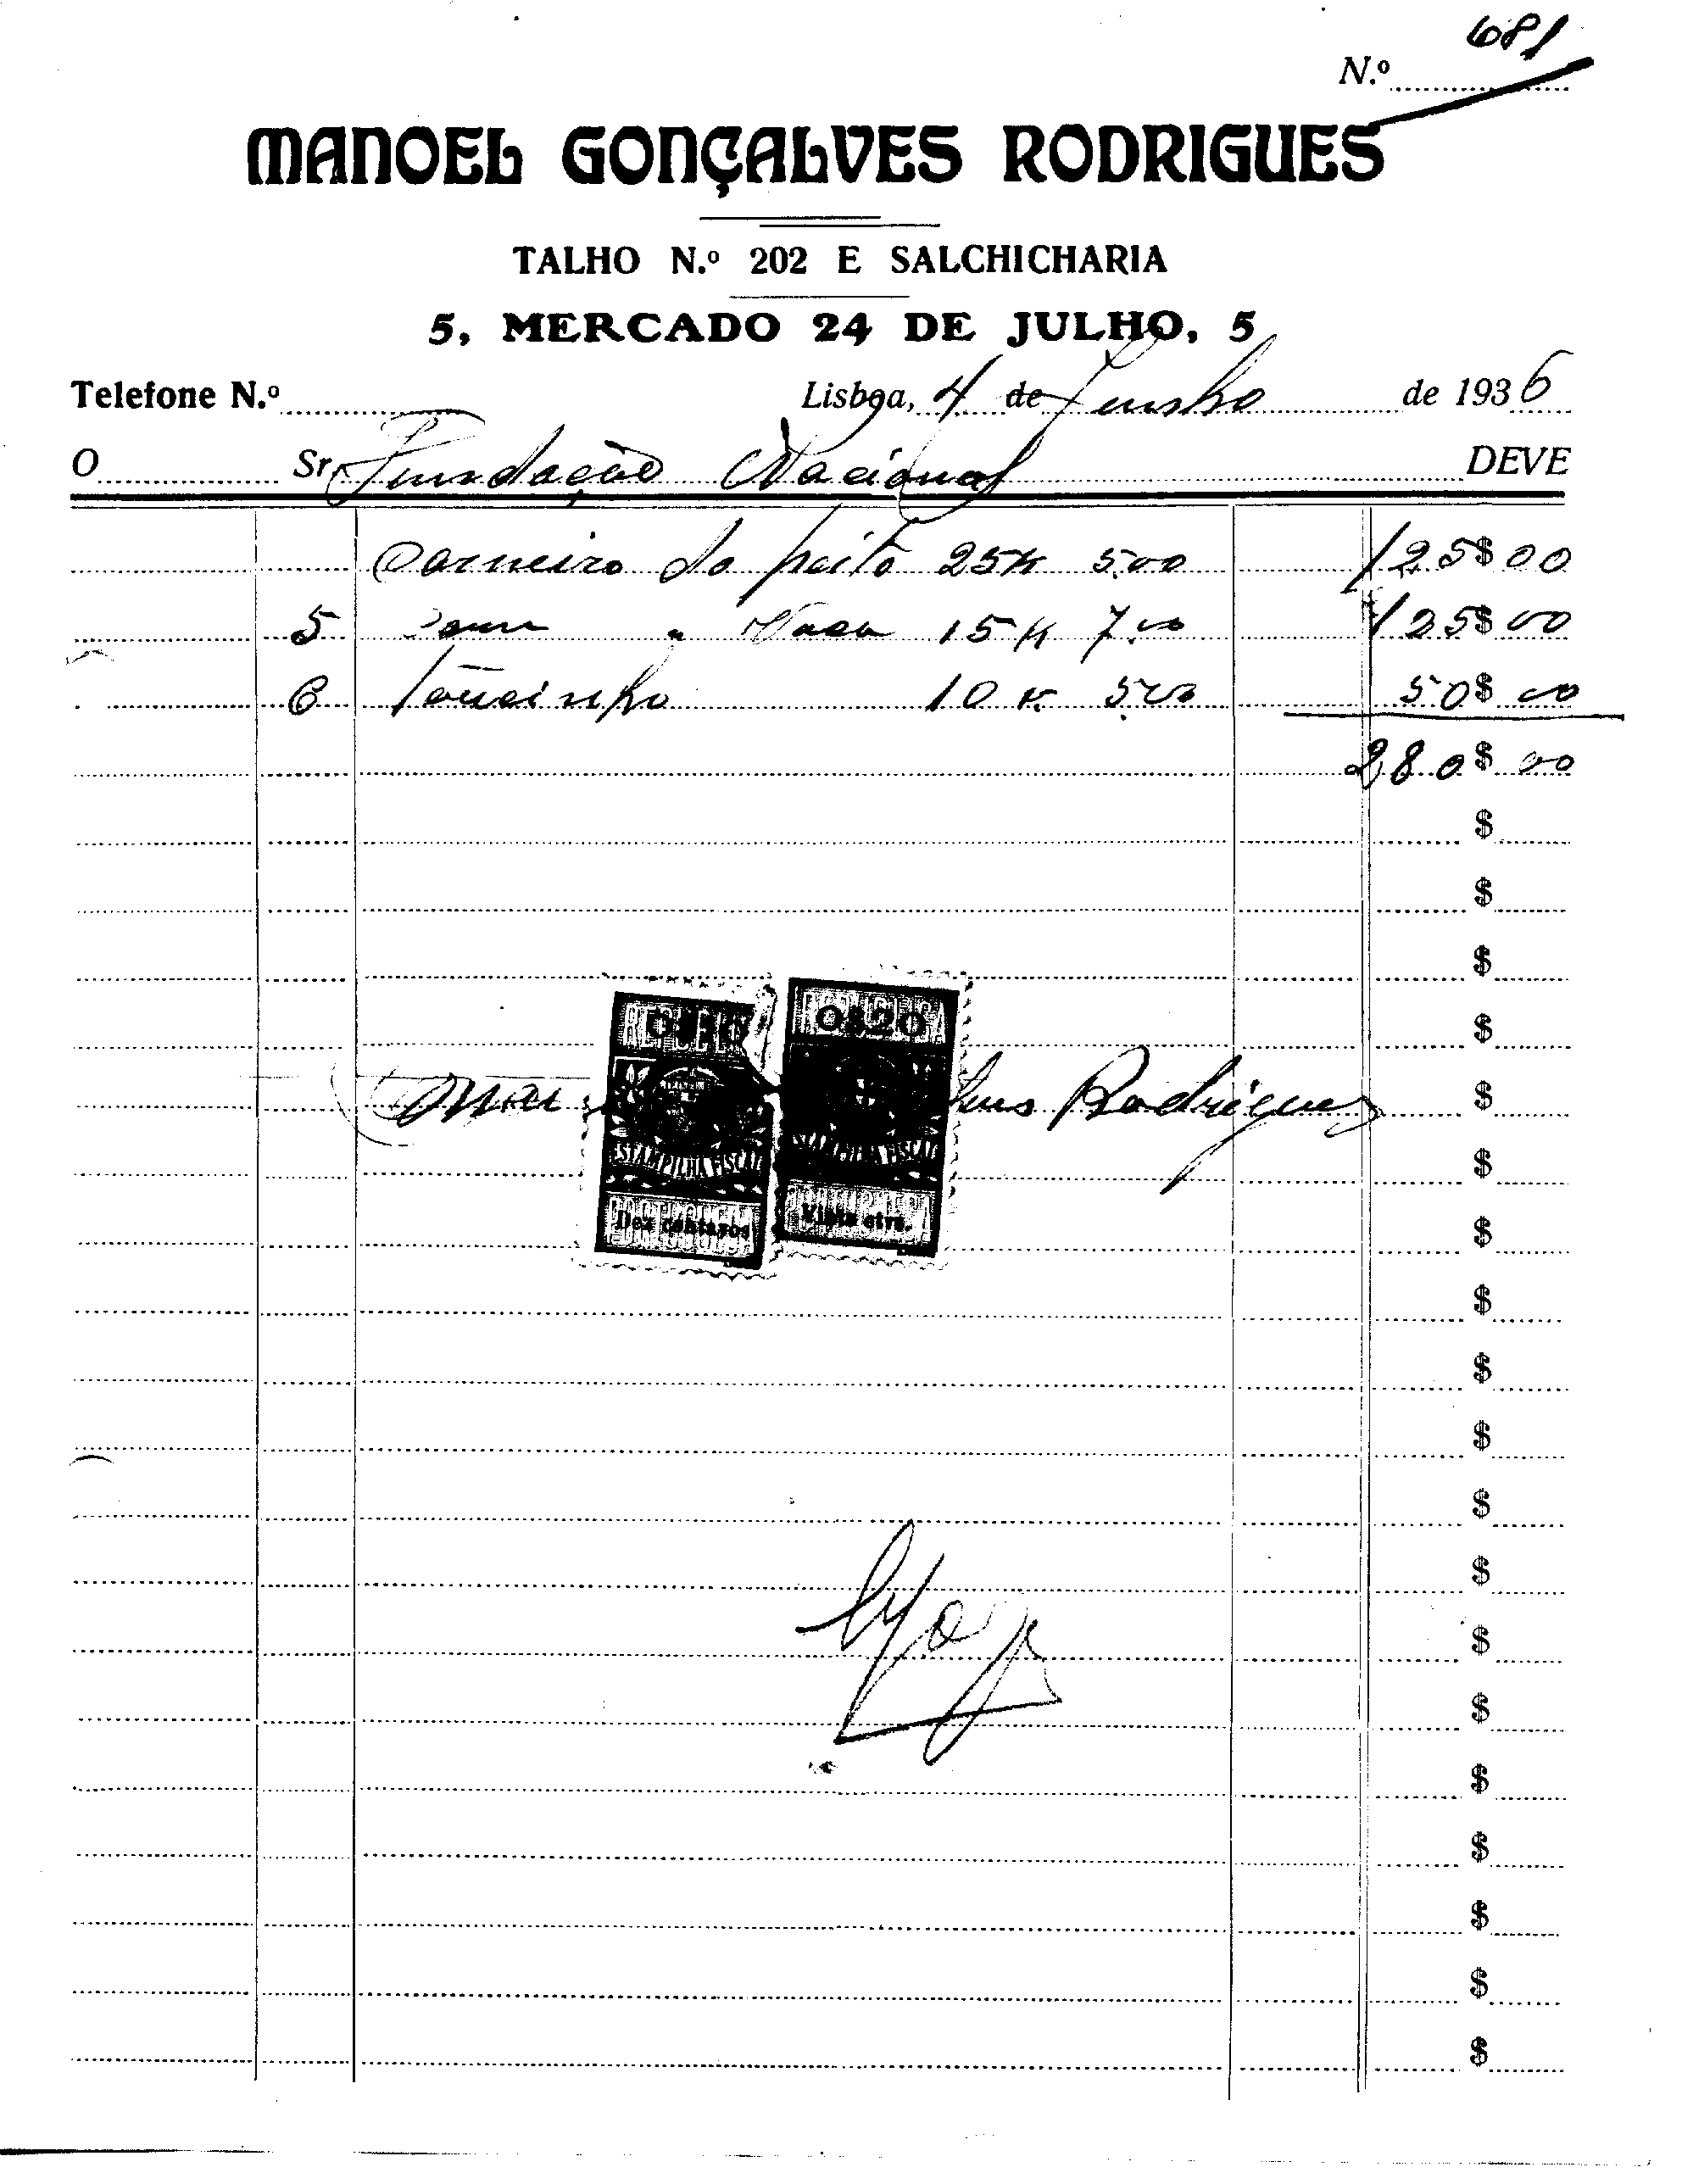 N.º 681
MANOEL GONÇALVES RODRIGUES
TALHO N.º 202 E SALCHICHARIA
5, MERCADO 24 DE JULHO, 5
Telefone N.º Lisboa, 4 de Junho de 1936
O Sr. Fundação Nacional DEVE
Carneiro do peito 25 K 5.00 125$00
5 " Vaca 15 K 7.00 125$00
6 Toucinho 10 K. 5.00 50$00
280$00
$
$
$
0$10 0$20
$
Rodrigues $
ESTAMPILHA FISCAL ESTAMPILHA FISCAL
$
Dez centavos Vinte ctvs.
$
$
$
$
$
$
$
$
$
$
$
$
$